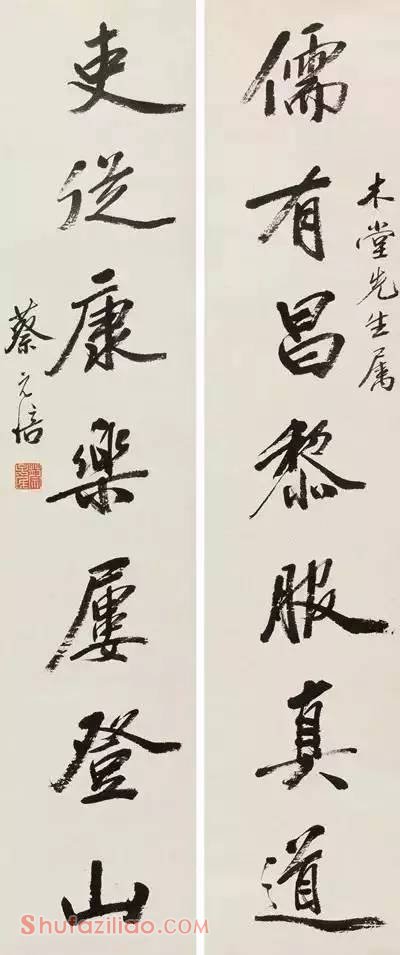 木堂先生属
儒有昌黎服真道
吏从康乐屡登山
蔡元培
ShufaziliaO.COM